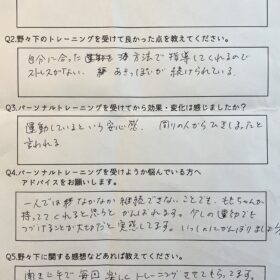 Q2.野々下のトレーニングを受けて良かった点を教えてください。
自分に合った運動方法で指導してくれるので
ストレスがない。あきっぽいが続けられている。
Q3.パーソナルトレーニングを受けてから効果・変化は感じましたか?
運動しているという安心感。周りの人からひきしまったと
言われる
Q4.パーソナルトレーニングを受けようか悩んでいる方へ
アドバイスをお願いします。
一人ではなかなか継続できないことでも、
持っててくれると思うとがんばれます。少しの運動でも
つづけることが大切だと実感してます。いっしょにがんばりましょう
Q5.野々下に関する感想などあれば教えてください。
毎回楽しくトレーニングさせてもらってます。